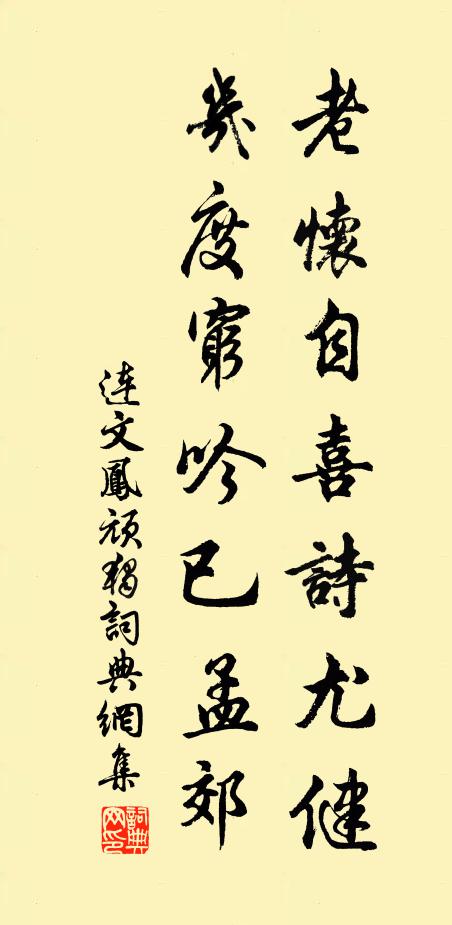 老懷自喜詩尤健
幾度窮吟已孟郊
連文鳳頑獨詞典網集
詞典網印